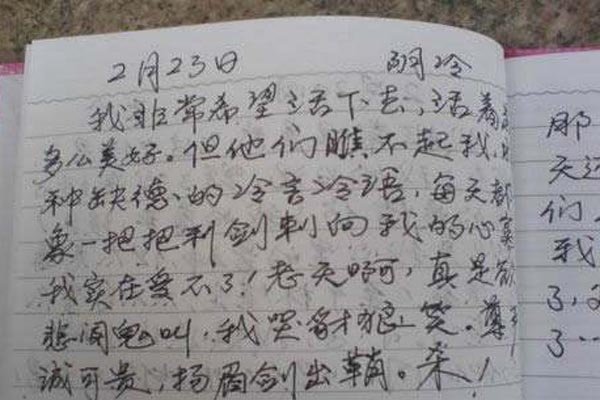 2月23日 阴冷
我非常希望活下去,活着
多么美好。但他们瞧不起我,
种缺德的冷言冷语,每天都
象一把把利剑刺向我的心窝
我实在受不了!老天啊,真是欲
悲闻鬼叫,我哭豺狼笑。尊
诚可贵,扬眉剑出鞘。杀!
那
天
们
我
了,
了…